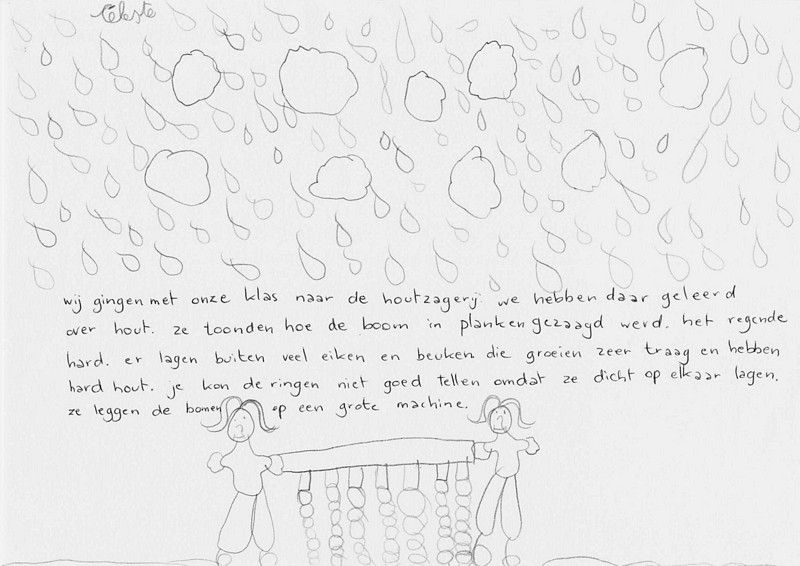 Celeste
wij gingen met onze klas naar de houtzagerij. we hebben daar geleerd
over hout. ze toonden hoe de boom in planken gezaagd werd. het regende
hard. er lagen buiten veel eiken en beuken die groeien zeer traag en hebben
hard hout. je kon de ringen niet goed tellen omdat ze dicht op elkaar lagen.
ze leggen de bomen op een grote machine.